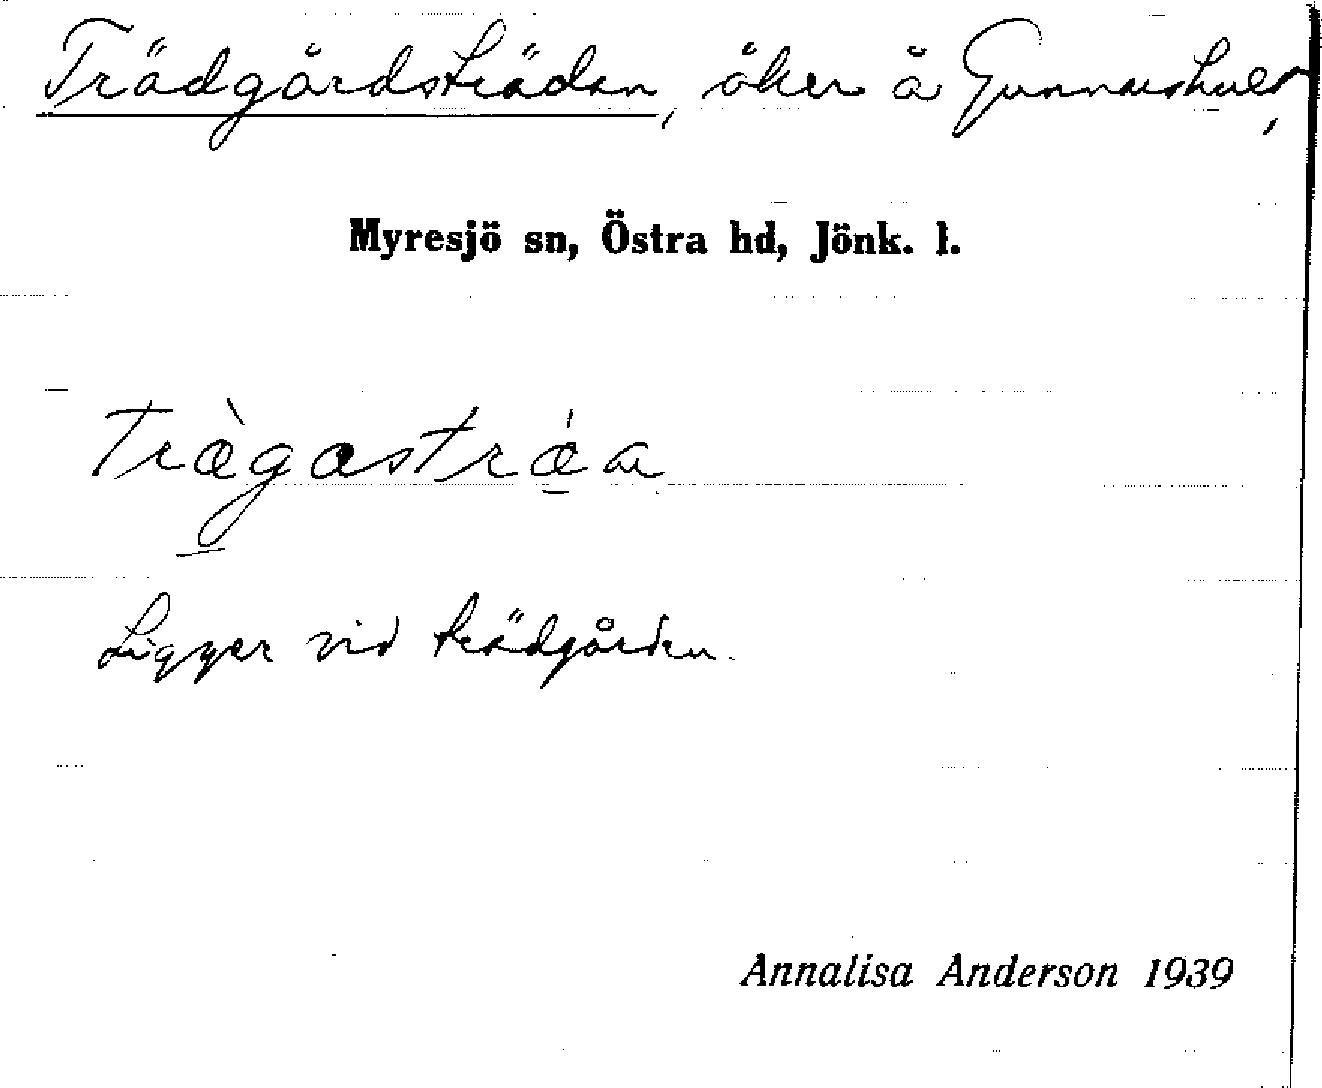 Trädgårdsträdan, åker å Gunnarshult,
Myresjö sn, Östra hd, Jönk. l.
Træ̀gastrǽa
Ligger vid trädgården.
Annalisa Anderson 1939